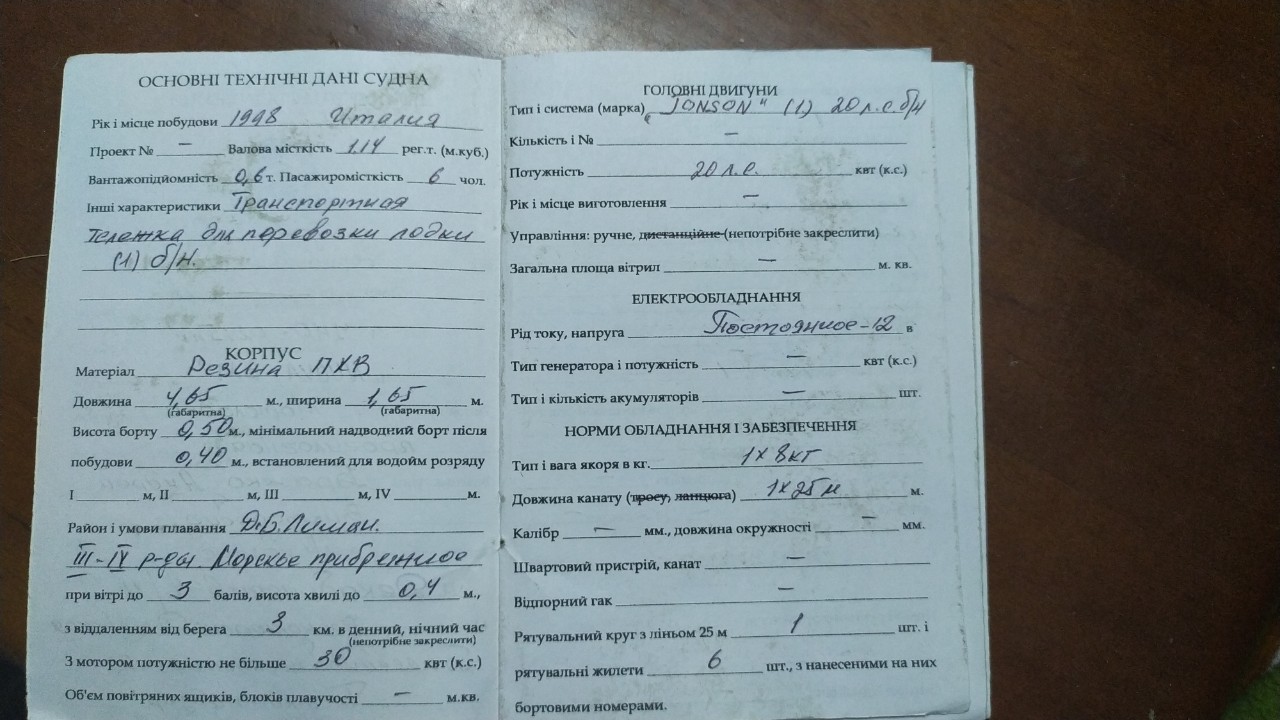 ОСНОВНІ ТЕХНІЧНІ ДАНІ СУДНА
Рік і місце побудови 1998 Италия
Проект № — Валова місткість 1.14 рег.т. (м.куб.)
Вантажопідйомність 0,6 т. Пасажиромісткість 6 чол.
Інші характеристики Транспортная
тележка для перевозки лодки
(1) б/н.
КОРПУС
Матеріал Резина ПХВ
Довжина 4,65 м., ширина 1,65 м.
(габаритна) (габаритна)
Висота борту 0,50 м., мінімальний надводний борт після
побудови 0,40 м., встановлений для водойм розряду
I м, II м, III м, IV м.
Район і умови плавання Д.Б.Лиман.
III-IV р-ды. Морское прибрежное
при вітрі до 3 балів, висота хвилі до 0,4 м.,
з віддаленням від берега 3 км. в денний, нічний час
(непотрібне закреслити)
З мотором потужністю не більше 30 квт (к.с.)
Об'єм повітряних ящиків, блоків плавучості — м.кв.
ГОЛОВНІ ДВИГУНИ
Тип і система (марка) „JONSON" (1) 20 л.с. б/н
Кількість і № —
Потужність 20 л.с. квт (к.с.)
Рік і місце виготовлення —
Управління: ручне, дистанційне (непотрібне закреслити)
Загальна площа вітрил — м. кв.
ЕЛЕКТРООБЛАДНАННЯ
Рід току, напруга Постоянное-12 в
Тип генератора і потужність — квт (к.с.)
Тип і кількість акумуляторів — шт.
НОРМИ ОБЛАДНАННЯ І ЗАБЕЗПЕЧЕННЯ
Тип і вага якоря в кг. 1х8кг
Довжина канату (тросу, ланцюга) 1х25м м.
Калібр — мм., довжина окружності — мм.
Швартовий пристрій, канат —
Відпорний гак —
Рятувальний круг з ліньом 25 м 1 шт. і
рятувальні жилети 6 шт., з нанесеними на них
бортовими номерами.